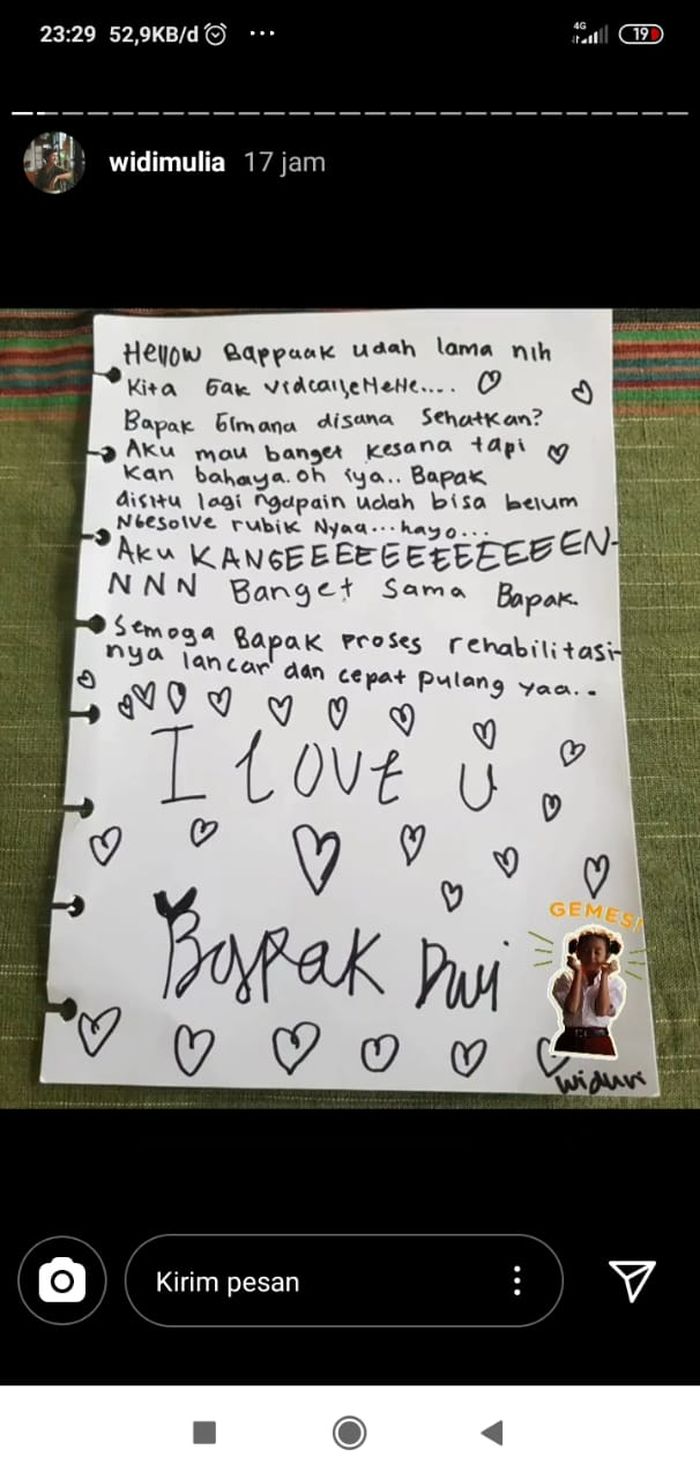 23:29 52,9KB/d ...
4G
19
widimulia 17 jam
Hellow Bappaak udah lama nih
Kita Gak vidcallseHeHe.... 
Bapak Gimana disana Sehatkan?
Aku mau banget kesana tapi
kan bahaya. oh iya.. Bapak
disitu lagi ngapain udah bisa belum
NGesolve rubik Nyaa... hayo...
Aku KANGEEEEEEEEEEEEEN-
NNN Banget Sama Bapak.
Semoga Bapak Proses rehabilitasi-
nya lancar dan cepat pulang yaa..
I love U
Bapak Dwi
GEMES!
Widuri
Kirim pesan